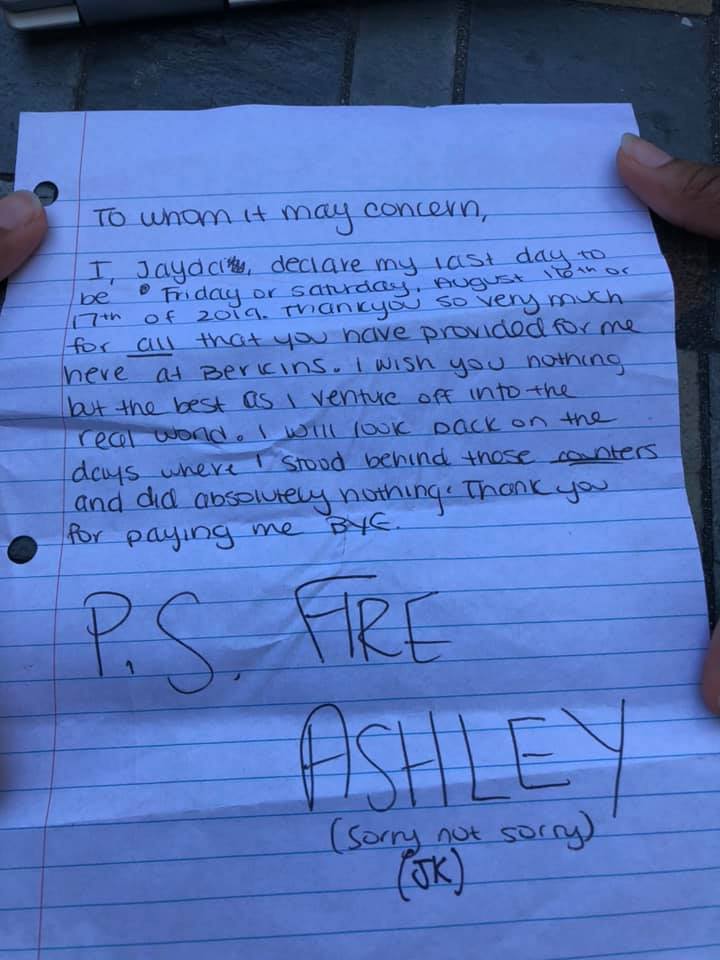 To whom it may concern,
I, Jayda, declare my last day to
be Friday or Saturday, August 16th or
17th of 2019. Thankyou so very much
for all that you have provided for me
here at Berkins. I wish you nothing
but the best as I venture off into the
real world. I will look back on the
days where I stood behind those counters
and did absolutely nothing. Thank you
for paying me BYE.
P.S. FIRE
ASHLEY
(sorry not sorry)
(JK)